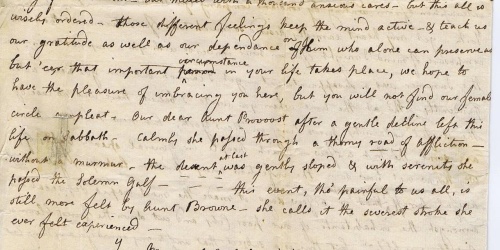 our mixed with a thousand anxious cares - but this all is
wisely ordered - those different feelings keep the mind active - & teach us
our gratitude as well as our dependance on him who alone can preserve us
but 'ear that important circumstance in your life takes place, we hope to
have the pleasure of imbracing you here, but you will not find our female
circle compleat - Our dear Aunt Provoost after a gentle decline left this
life on Sabbath - Calmly she passed through a thorny road of affliction -
without murmur - the decent at last was gently sloped & with serenity she
passed the Solemn Gulf - this event, tho' painful to us all, is
still more felt by Aunt Browne - she calls it the severest stroke she
ever felt experienced -